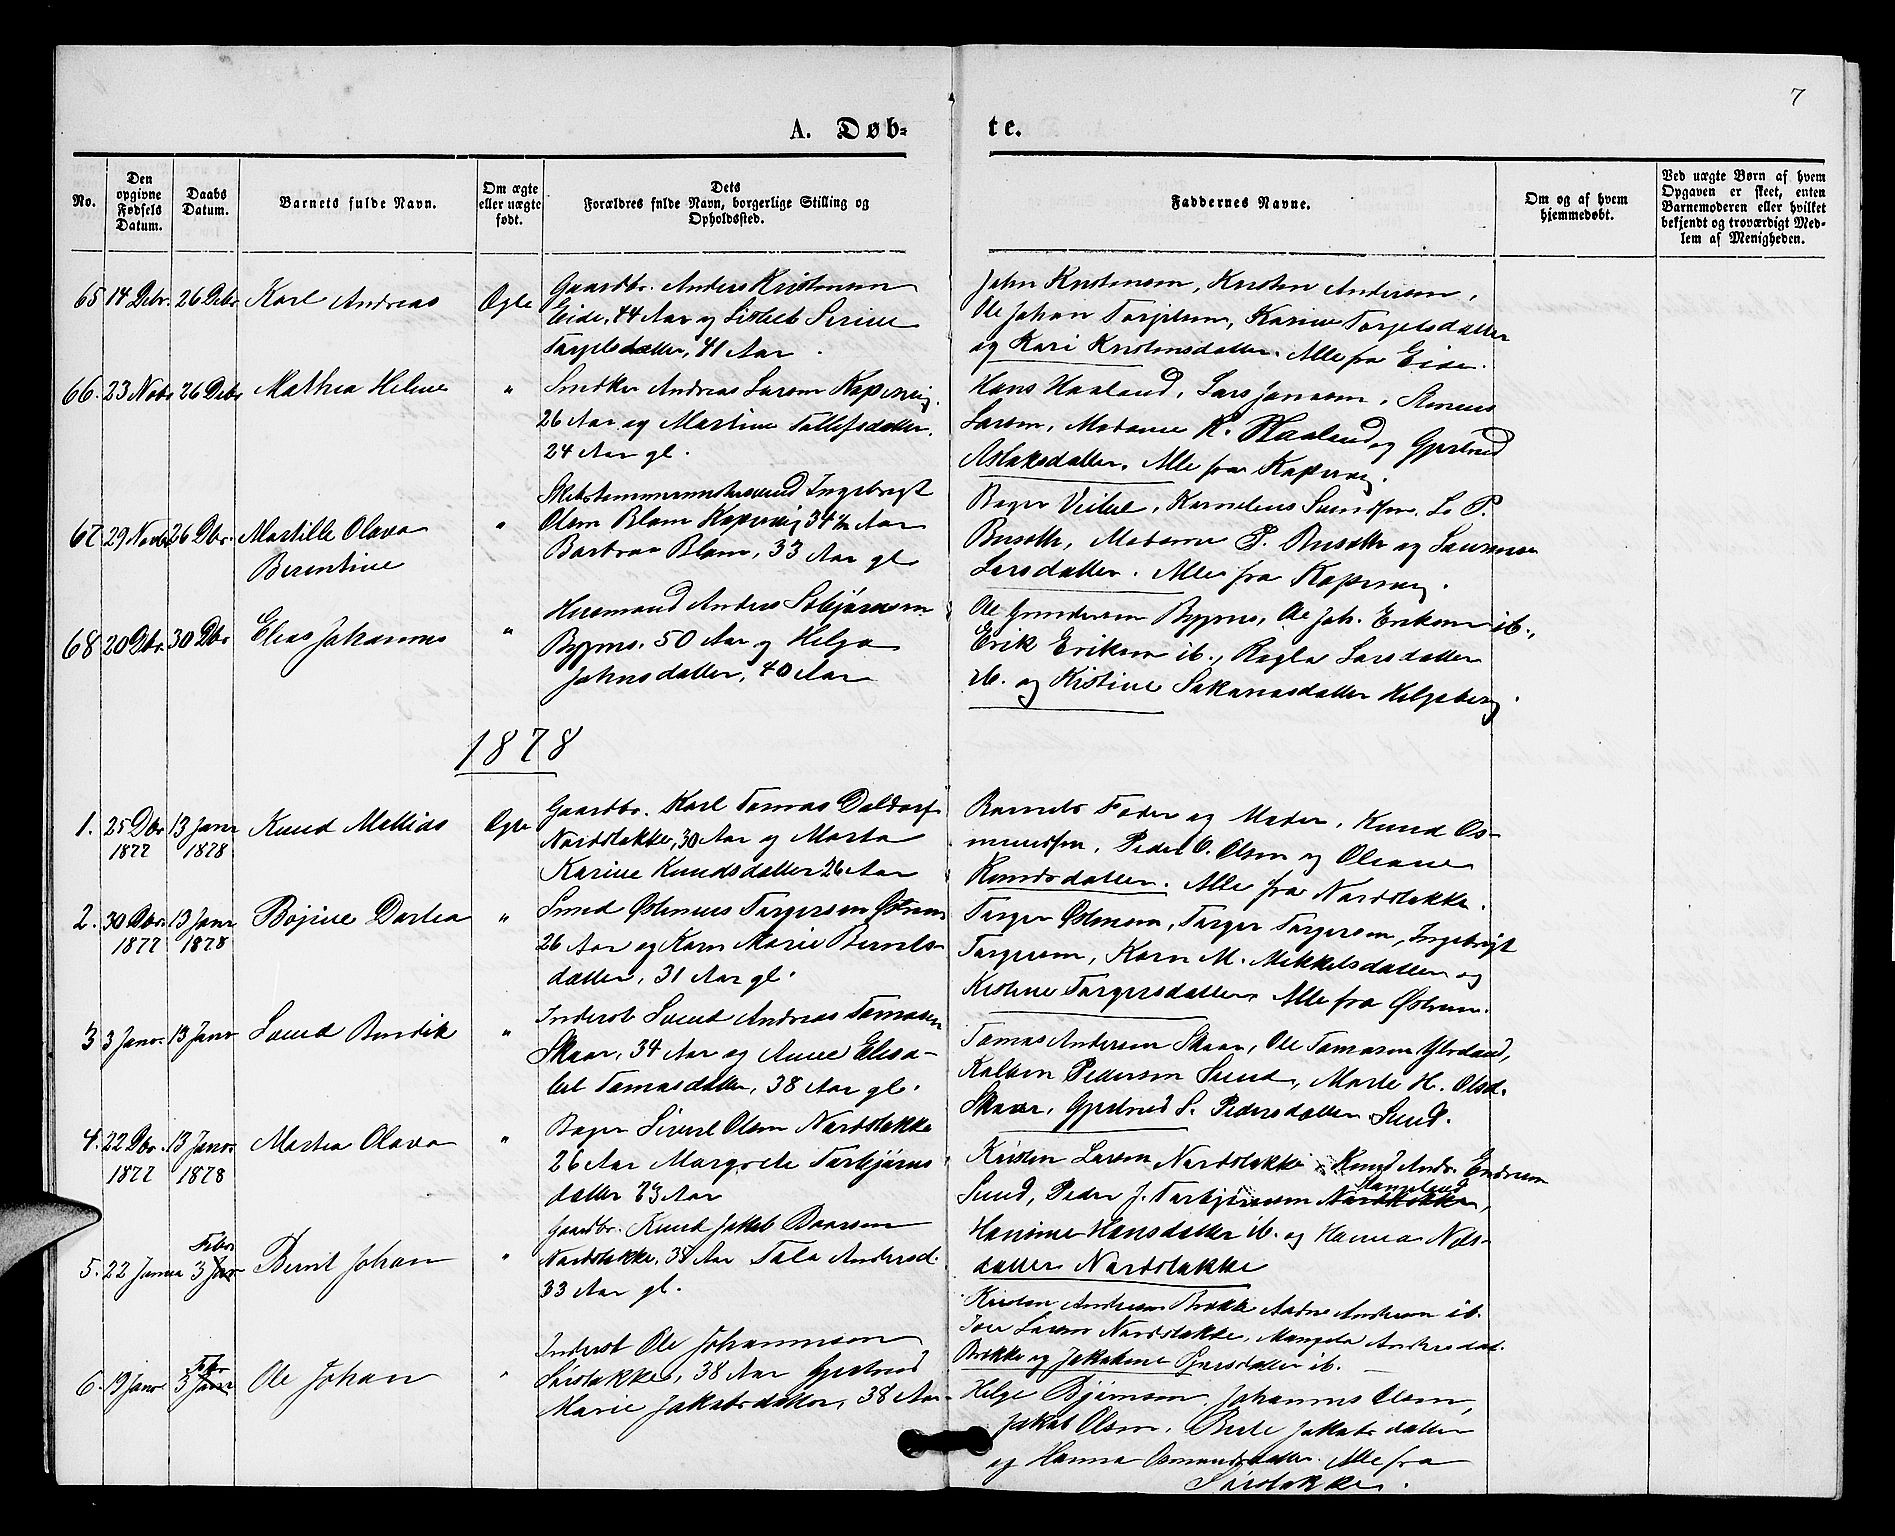 7
A. Døb-
te.
No.
Den opgivne Fødsels Datum.
Daabs Datum.
Barnets fulde Navn.
Om ægte eller uægte født.
Dets
Forældres fulde Navn, borgerlige Stilling og
Opholdssted.
Faddernes Navne.
Om og af hvem
hjemmedøbt.
Ved uægte Børn af hvem
Opgaven er skeet, enten
Barnemoderen eller hvilket
bekjendt og troværdigt Med-
lem af Menigheden.
65 14 Debr. 26 Debr. Karl Andreas Ægte
Gaardbr. Anders Kristensen
Eide, 44 Aar og Lisbet Serine
Torgelsdatter, 41 Aar.
John Kristensen, Kristen Andersen,
Ole Johan Torgelsen, Karine Torgelsdatter
og Kari Kristensdatter. Alle fra Eide.
66. 23 Nobr 26 Debr Mathea Helene "
Snedker Andreas Larsen Kopervig.
26 Aar og Martine Tollefsdatter.
24 Aar gl.
Hans Haaland, Lars Jansen,
Larsen, Madame K. Haaland og Gjertrud
Aslaksdatter. Alle fra Kopervig.
67. 29 Novbr 26 Dbr. Martille Olava "
Berentine
Skibstømmermandsvend Ingebregt
Olsen Blom Kopervig 34 Aar
Barbra Blom, 33 Aar gl
Bager Kornelius L. P.
Madame P. og
Larsdatter. Alle fra Kopervig.
68 20 Dbr. 30 Dbr Elias Johannes "
Husmand Anders
Bygnes. 50 Aar og Helga
Johnsdatter, 40 Aar
Ole Gundersen Bygnes, Ole Joh. Eriksen ib.,
Erik Eriksen ib., Larsdatter
ib. og Kistine Helgeberg.
1878
1. 25 Dbr 13 Janr Knud Mathias Ægte
1877 1878
Gaardbr. Karl Tomas
Nordstokke, 30 Aar og Marta
Karine Knudsdatter 26 Aar
Barnets Fader og Moder, Knud Os-
mundsen, Peder O. Olsen og Oleane
Knudsdatter. Alle fra Nordstokke.
2. 30 Dbr. 13 Janr Bojine Dortea "
1877 1878
Smed Østenius Torgersen Østrem
26 Aar og Karn Marie Bernts-
datter, 31 Aar gl.
Torger Østensen, Torger Torgersen, Ingebrigt
Torgersen, Karn M. Mikkelsdatter og
Kistine Torgersdatter. Alle fra Østrem.
3 3 Janr. 13 Janr Svend Bendik "
Inderst Svend Andreas Tomasen
Skaar, 34 Aar og Anne Elisa-
bet Tomasdatter, 38 Aar gl.
Tomas Andersen Skaar, Ole Tomasen
Pedersen Sund, Marte H. Olsd.
Skaar, Gjertrud S. Pedersdatter Sund.
4. 22 Dbr. 13 Janr. Martea Olava "
1877 1878
Bager Sivert Olsen Nordstokke
26 Aar Margrete Torbjørns
datter 23 Aar
Kristen Larsen Nordstokke, Knud Andr. Endresen
Sund, Peder J. Torbjørnsen Nordstokke,
Hansine Hansdatter ib. og Hanna Nils-
datter Nordstokke
5. 22 Janua Febr 3 Jan Bernt Johan "
Gaardbr. Knud Jakob Baarsen
Nordstokke, 38 Aar Tala Andersd.
33 Aar gl.
Kristen Andersen Brekke Aadne Andersen ib.
Iver Larsen Nordstokke, Andersdat.
Brekke og Jakobine ib.
6. 19 Janr Febr 3 Janr Ole Johan "
Inderst Ole Johannesen
Sørstokke, 38 Aar Gjertrud
Marie Jakobsdatter, 38 Aar
Helge Bjørnsen Johannes Olsen,
Jakob Olsen, Berte Jakobsdatter
og Hanna Osmundsdatter. Alle fra
Sørstokke.